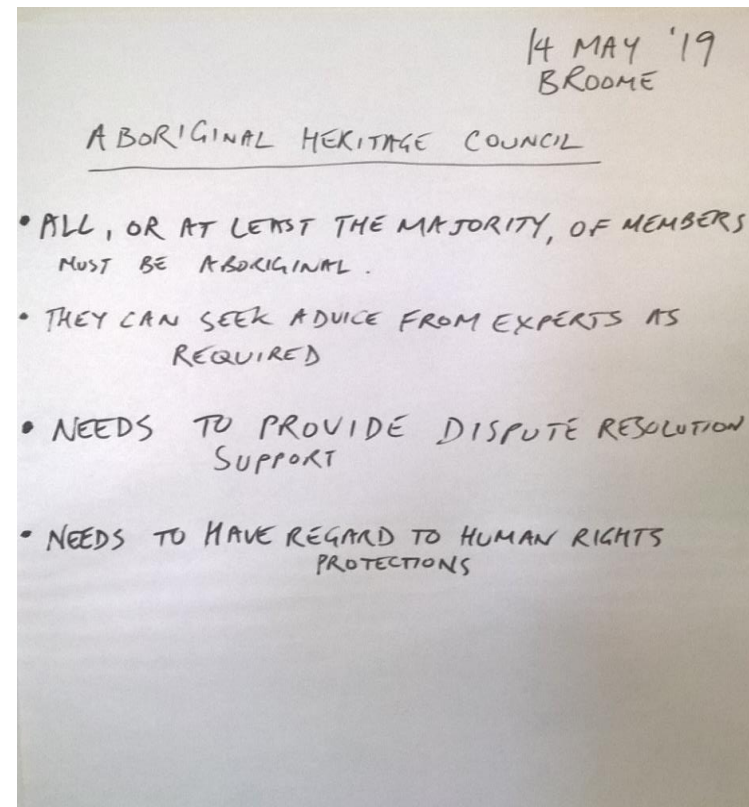 14 MAY '19
BROOME
ABORIGINAL HERITAGE COUNCIL
• ALL, OR AT LEAST THE MAJORITY, OF MEMBERS
MUST BE ABORIGINAL.
• THEY CAN SEEK ADVICE FROM EXPERTS AS
REQUIRED
• NEEDS TO PROVIDE DISPUTE RESOLUTION
SUPPORT
• NEEDS TO HAVE REGARD TO HUMAN RIGHTS
PROTECTIONS